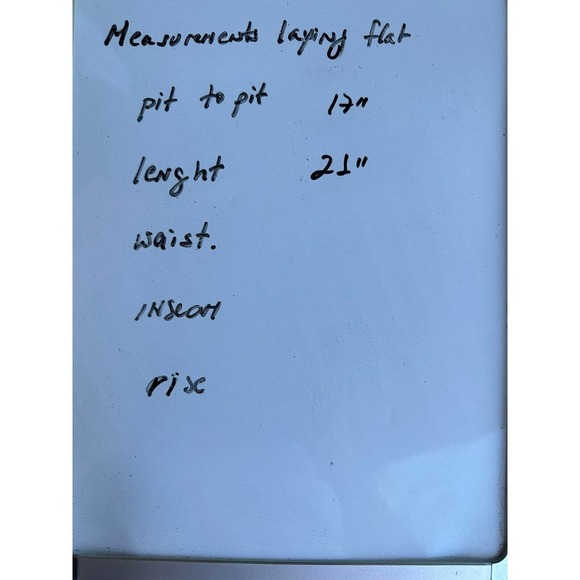 Measurements laying flat
pit to pit 17"
lenght 21"
waist.
INSeam
rise